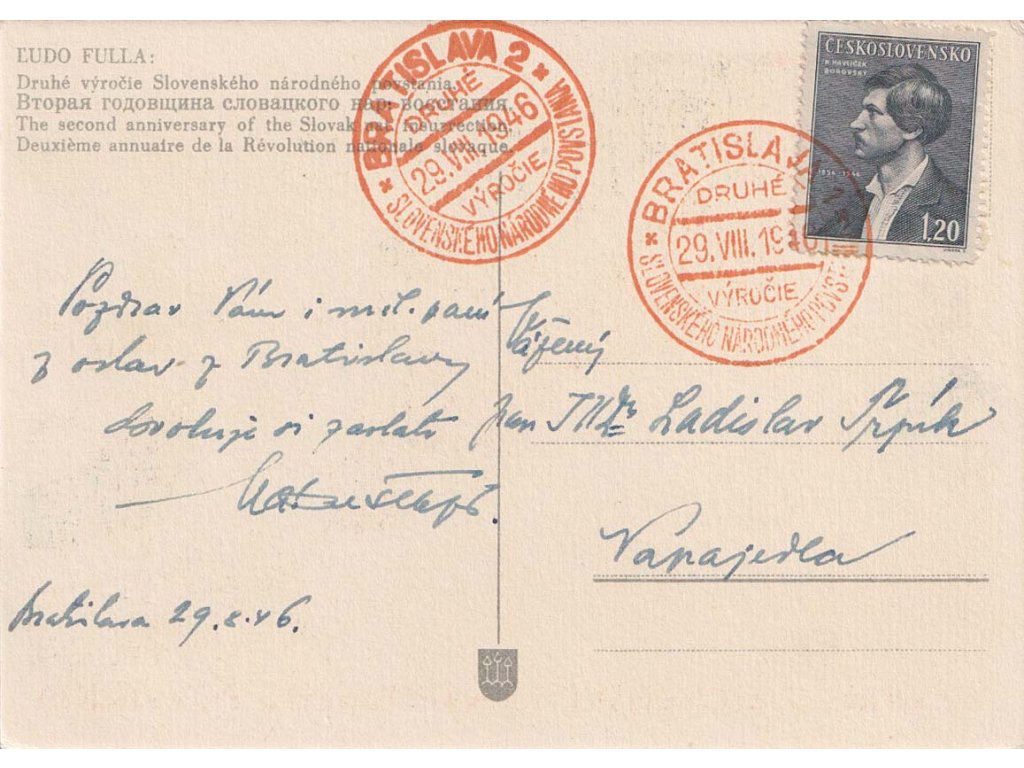 ĽUDO FULLA:
Druhé výročie Slovenského národného povstania.
Вторая годовщина словацкого нар. восстания.
The second anniversary of the Slovak nat. insurrection.
Deuxième annuaire de la Révolution nationale slovaque.
BRATISLAVA 2
DRUHÉ
29.VIII.1946
VÝROČIE
SLOVENSKÉHO NÁRODNÉHO POVSTANIA
BRATISLAVA
DRUHÉ
29.VIII.1946
VÝROČIE
SLOVENSKÉHO NÁRODNÉHO POVST
ČESKOSLOVENSKO
K. HAVLÍČEK
BOROVSKÝ
1856-1946
1,20
Pozdrav Vám i mil. paní
z oslav z Bratislavy
dovoluje si zaslati
Vážený
pan JUDr Ladislav
Napajedla
Bratislava 29.8.46.